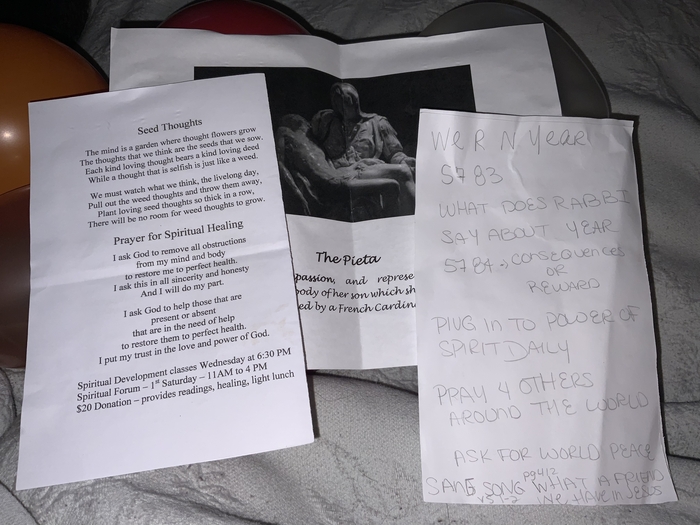 Seed Thoughts
The mind is a garden where thought flowers grow
The thoughts that we think are the seeds that we sow.
Each kind loving thought bears a kind loving deed
While a thought that is selfish is just like a weed.
We must watch what we think, the livelong day,
Pull out the weed thoughts and throw them away,
Plant loving seed thoughts so thick in a row,
There will be no room for weed thoughts to grow.
Prayer for Spiritual Healing
I ask God to remove all obstructions
from my mind and body
to restore me to perfect health.
I ask this in all sincerity and honesty
And I will do my part.
I ask God to help those that are
present or absent
that are in the need of help
to restore them to perfect health.
I put my trust in the love and power of God.
Spiritual Development classes Wednesday at 6:30 PM
Spiritual Forum – 1st Saturday – 11AM to 4 PM
$20 Donation – provides readings, healing, light lunch
The Pieta
passion, and represe
body of her son which sh
ed by a French Cardina
We R N Year
5783
WHAT DOES RABBI
SAY ABOUT YEAR
5784., CONSEQUENCES
OR
REWARD
PlUG IN TO POWER OF
SPIRIT DAILY
PRAY 4 OTHERS
AROUND THE WORLD
ASK FOR WORLD PEACE
SANG SONG pg412 WHAT A FRIEND
vs 1-2 We Have in Jesus